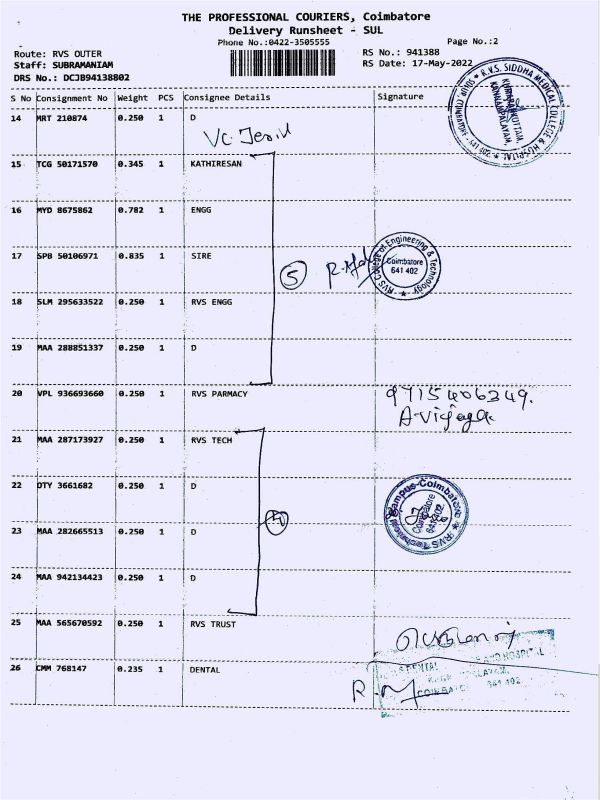 THE PROFESSIONAL COURIERS, Coimbatore
Delivery Runsheet - SUL
Phone No.:0422-3505555 Page No.:2
Route: RVS OUTER RS No.: 941388
Staff: SUBRAMANIAM RS Date: 17-May-2022
DRS No.: DCJB94138802
R.V.S. SIDDHA MEDICAL COLLEGE & HOSPITAL
KUMARAN KOTTAM,
KANNAMPALAYAM,
S No Consignment No Weight PCS Consignee Details Signature
14 MRT 210874 0.250 1 D
15 TCG 50171570 0.345 1 KATHIRESAN
16 MYD 8675862 0.782 1 ENGG
17 SPB 50106971 0.835 1 SIRE
5
RVS College of Engineering & Technology
Coimbatore
641 402
18 SLM 295633522 0.250 1 RVS ENGG
19 MAA 288851337 0.250 1 D
20 VPL 936693660 0.250 1 RVS PARMACY 9715406349.
21 MAA 287173927 0.250 1 RVS TECH
22 DTY 3661682 0.250 1 D
4
RVS Technical Campus-Coimbatore
Coimbatore
641402
23 MAA 282665513 0.250 1 D
24 MAA 942134423 0.250 1 D
25 MAA 565670592 0.250 1 RVS TRUST
26 CMM 768147 0.235 1 DENTAL
AND HOSPITAL
641 402